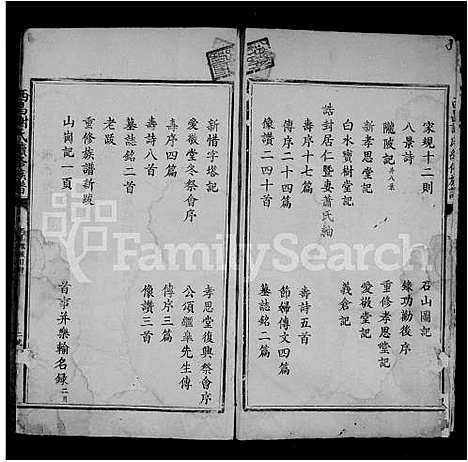 家規十二則
八景詩
隴陂記
新孝思堂記
白水寶樹堂記
誥封居仁暨妻蕭氏
壽序十七篇
傳序二十四篇
像讚二四十首
石山圖記
錄功勸後序
重修孝思堂記
愛敬堂記
義倉記
壽詩五首
節婦傳文四篇
墓誌銘二篇
新惜字塔記
愛敬堂冬祭會序
壽序四篇
壽詩八首
墓誌銘二首
老跋
重修族譜新跋
山崗記一頁
孝思堂復興祭會序
公頌繼皋先生傳
傳序三篇
像讚三首
首事并樂輸名錄
FamilySearch